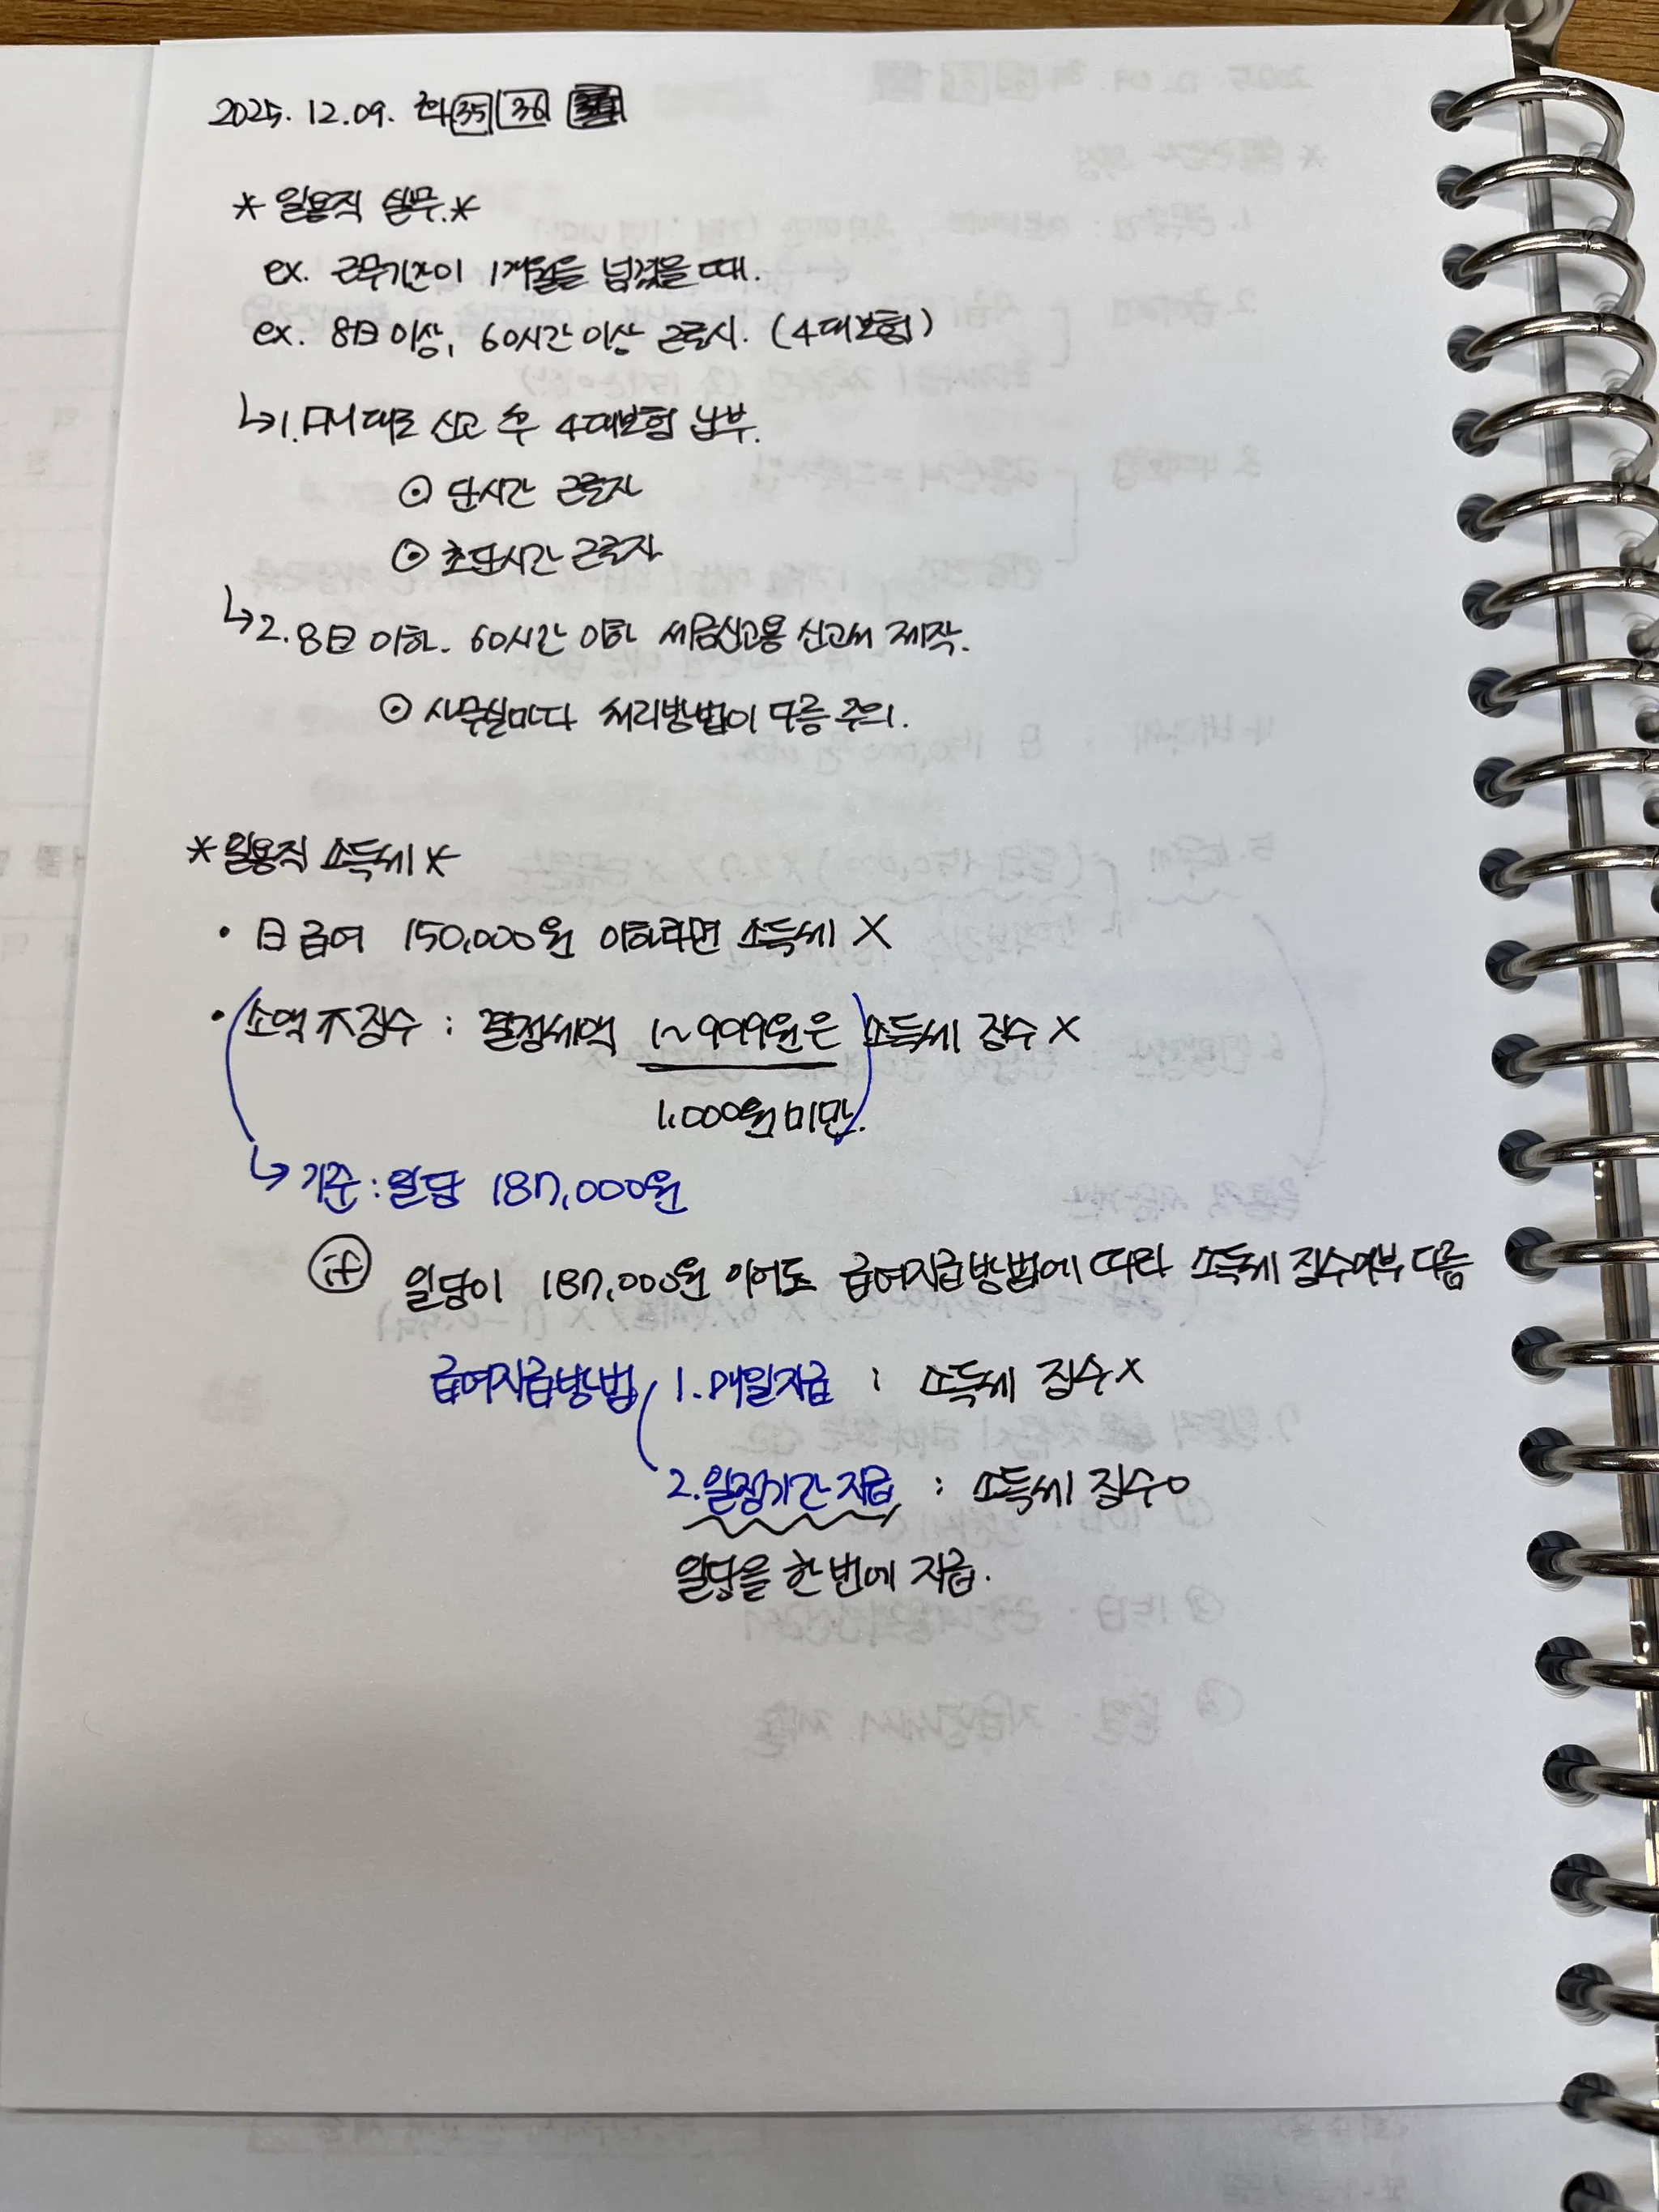 2025. 12. 09. 화 35 36
* 일용직 실무.*
ex. 근무기간이 1개월을 넘겼을 때.
ex. 8日 이상, 60시간 이상 근로시. (4대보험)
↳1. FM대로 신고 후 4대보험 납부.
⊙ 단시간 근로자
⊙ 초단시간 근로자
↳2. 8日 이하. 60시간 이하 세금신고용 신고서 제작.
⊙ 사무실마다 처리방법이 다름 주의.
*일용직 소득세*
• 日 급여 150,000원 이하라면 소득세 X
• 소액 不징수 : 결정세액 1~999원은 소득세 징수 X
1,000원 미만.
↳ 기준 : 일당 187,000원
if 일당이 187,000원 이어도 급여지급방법에 따라 소득세 징수여부 다름
급여지급방법 1. 매일지급 : 소득세 징수 X
2. 일정기간 지급 : 소득세 징수 O
일당을 한번에 지급.